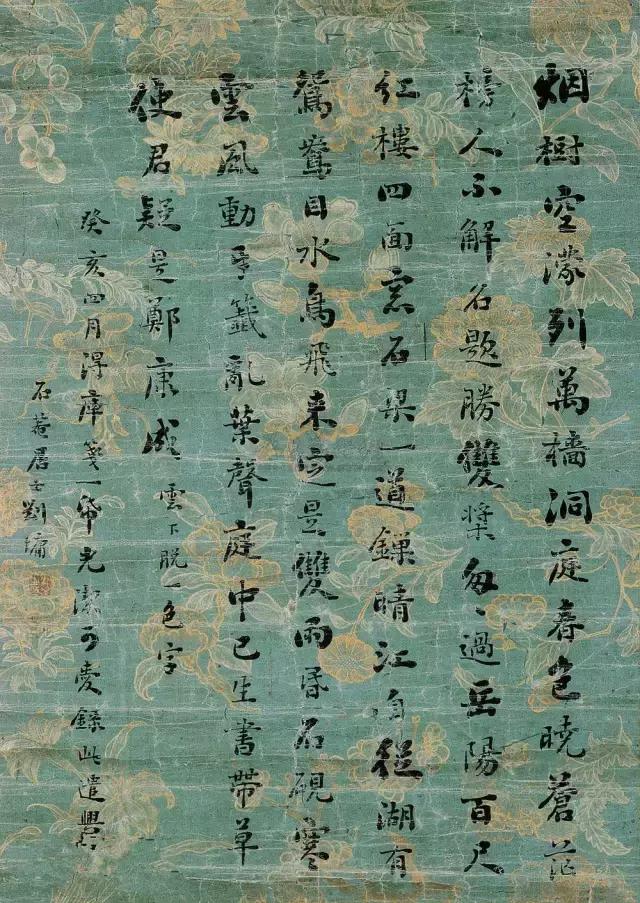 烟樹空濛列萬檣洞庭春色曉蒼茫
榜人不解名題勝雙槳匆々過岳陽百尺
紅樓四面窓石梁一道鏁晴江自從湖有
鴛鴦目水鳥飛来定是雙雨昏石硯寒
雲風動牙籤亂葉聲庭中已生書帶草
使君疑是鄭康成 雲下脱一色字
癸亥四月淂庫箋一帋光潔可愛錄此遣興
石菴居士劉墉